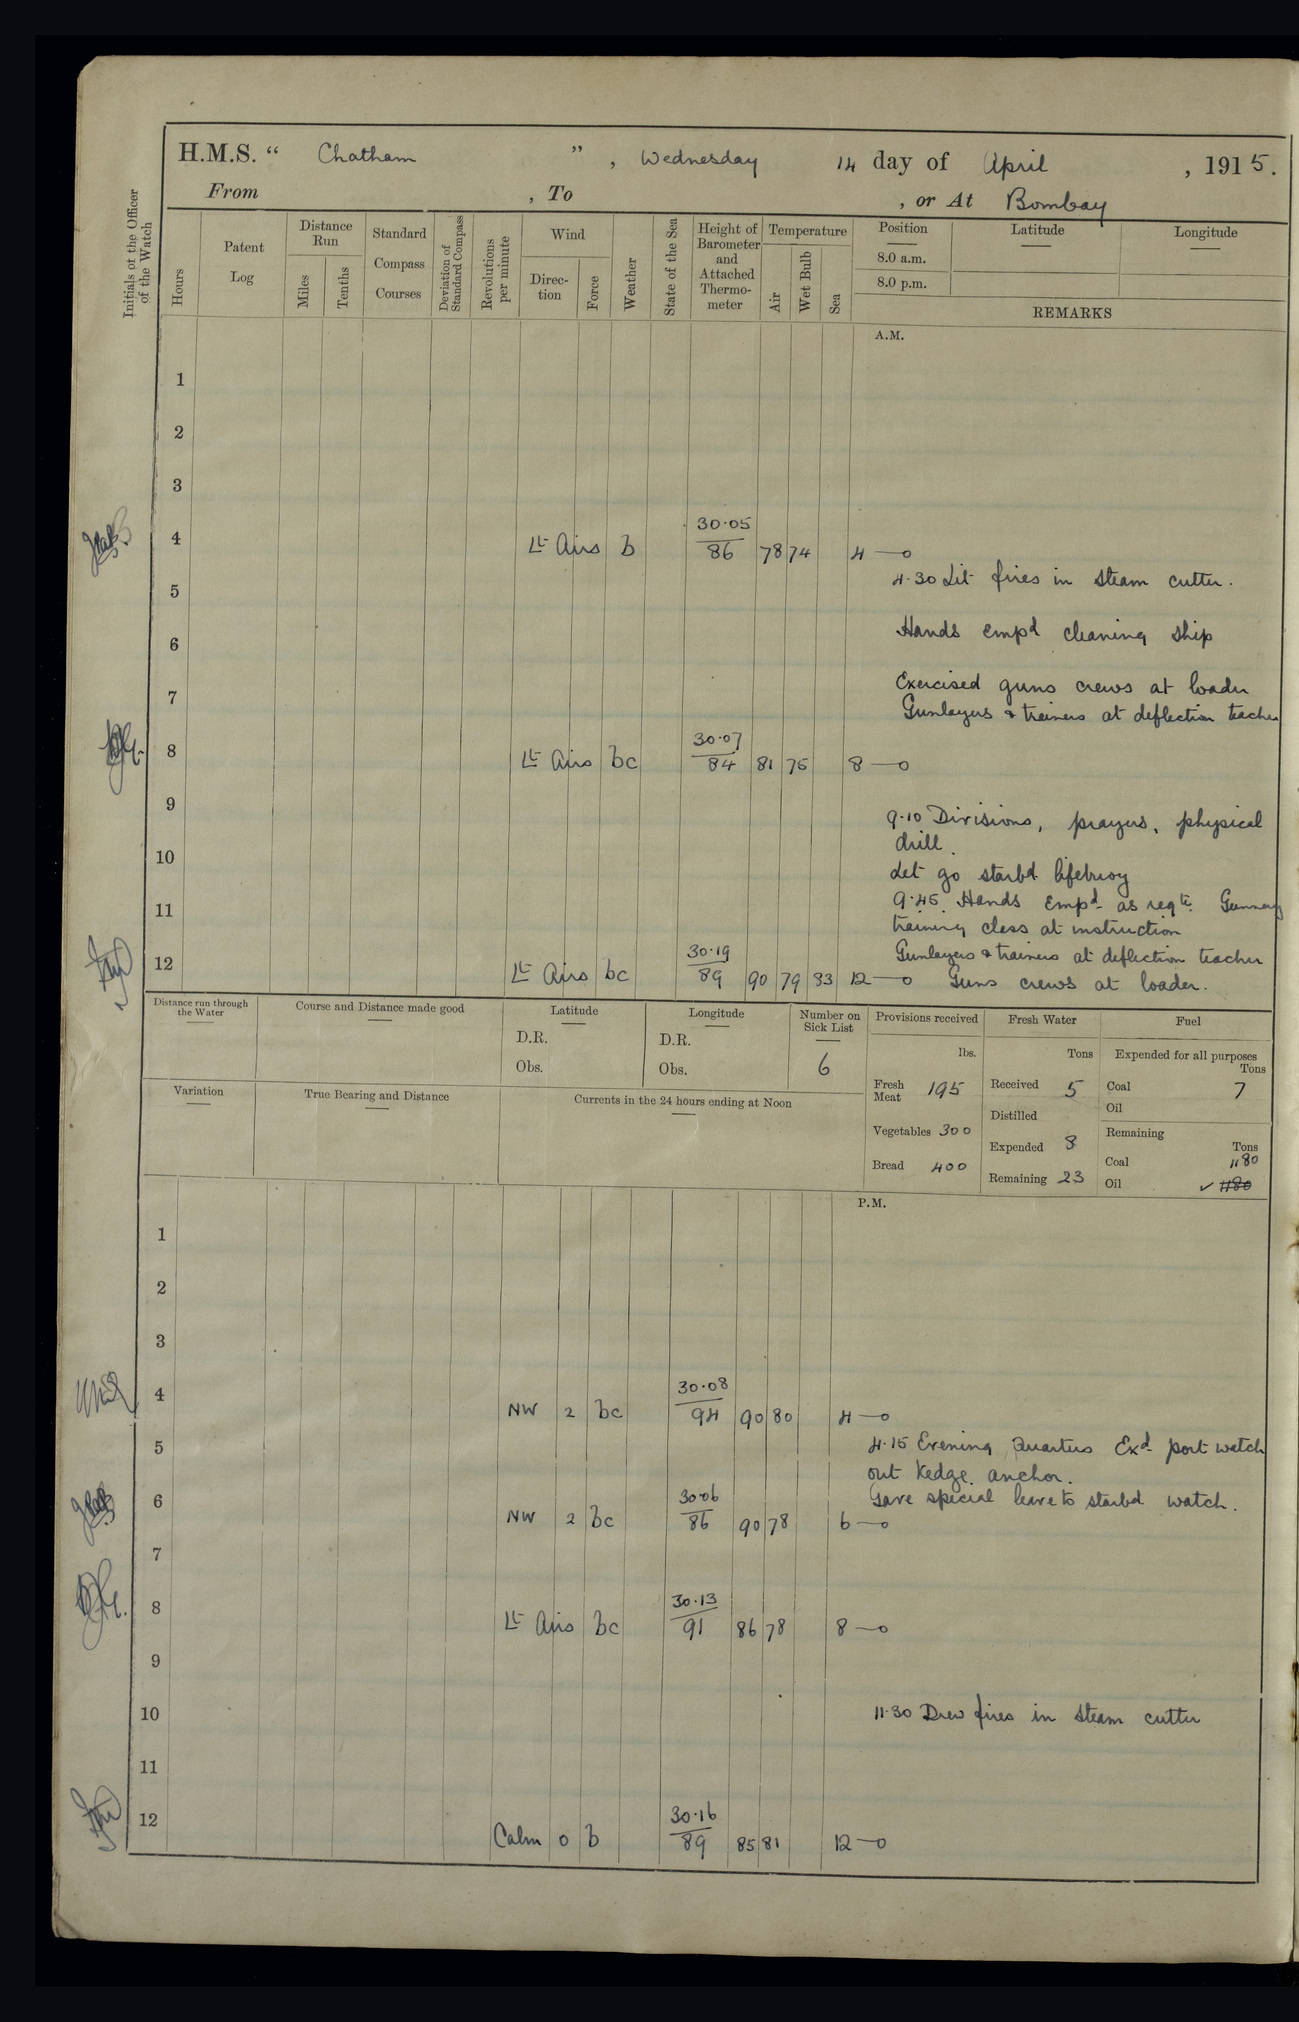 H.M.S. “ Chatham ” , Wednesday 14 day of April , 1915.
From , To , or At Bombay
Initials of the Officer of the Watch
Hours
Patent Log
Distance Run
Miles
Tenths
Standard Compass Courses
Deviation of Standard Compass
Revolutions per minute
Wind
Direction
Force
Weather
State of the Sea
Height of Barometer and Attached Thermometer
Temperature
Air
Wet Bulb
Sea
Position
8.0 a.m.
8.0 p.m.
Latitude
Longitude
REMARKS
A.M.
1
2
3
4 Lt Airs b 30·05 / 86 78 74 4 —o
4·30 Lit fires in steam cutter.
5
6 Hands empd cleaning ship
7 Exercised guns crews at loader
Gunlayers & trainers at deflection teacher
8 Lt Airs bc 30·07 / 84 81 75 8 —o
9
9·10 Divisions, prayers, physical
drill.
10
Let go starbd lifebuoy
11 9·45 Hands Empd as reqte. Gunnery
training class at instruction
Gunlayers & trainers at deflection teacher
12 Lt Airs bc 30·19 / 89 90 79 83 12 —o Guns crews at loader.
Distance run through the Water
Course and Distance made good
Latitude
D.R.
Obs.
Longitude
D.R.
Obs.
Number on Sick List
6
Provisions received
lbs.
Fresh Meat 195
Vegetables 300
Bread 400
Fresh Water
Tons
Received 5
Distilled
Expended 8
Remaining 23
Fuel
Expended for all purposes
Tons
Coal 7
Oil
Remaining
Tons
Coal 1180
Oil ✓ 1180
Variation
True Bearing and Distance
Currents in the 24 hours ending at Noon
P.M.
1
2
3
4 NW 2 bc 30·08 / 94 90 80 4 —o
5 4·15 Evening Quarters Exd port watch
out Kedge anchor.
Gave special leave to starbd watch.
6 NW 2 bc 30·06 / 86 90 78 6 —o
7
8 Lt Airs bc 30·13 / 91 86 78 8 —o
9
10 11·30 Drew fires in steam cutter
11
12 Calm 0 b 30·16 / 89 85 81 12 —o